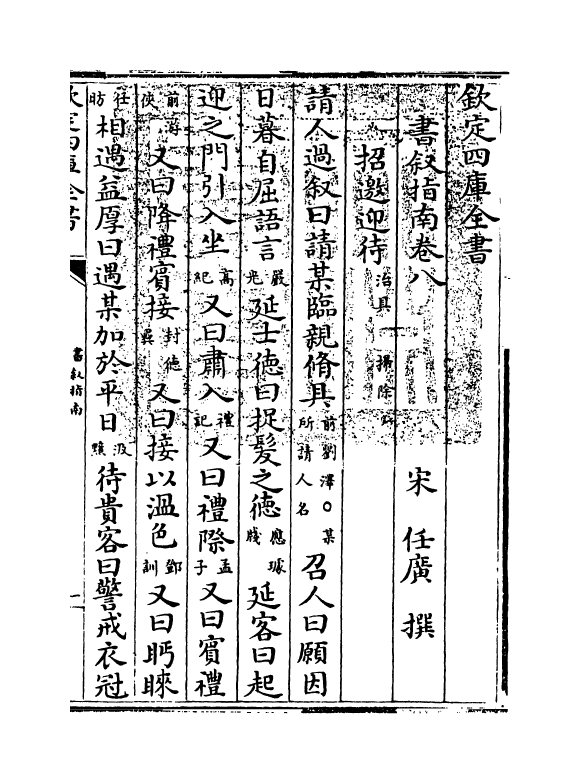 欽定四庫全書
書叙指南卷八
宋 任廣 撰
招邀迎待 治具 掃除
請人過叙曰請某臨親脩具 前劉澤○某所請人名 召人曰願因
日暮自屈語言 嚴光 延士徳曰捉髪之徳 應璩牋 延客曰起
迎之門引入坐 高紀 又曰肅入 禮記 又曰禮際 孟子 又曰賓禮
前游俠 又曰降禮賓接 封徳彞 又曰接以温色 鄧訓 又曰眄睞
任昉 相遇益厚曰遇某加於平日 汲黯 待貴客曰警戒衣冠
欽定四庫全書
書叙指南